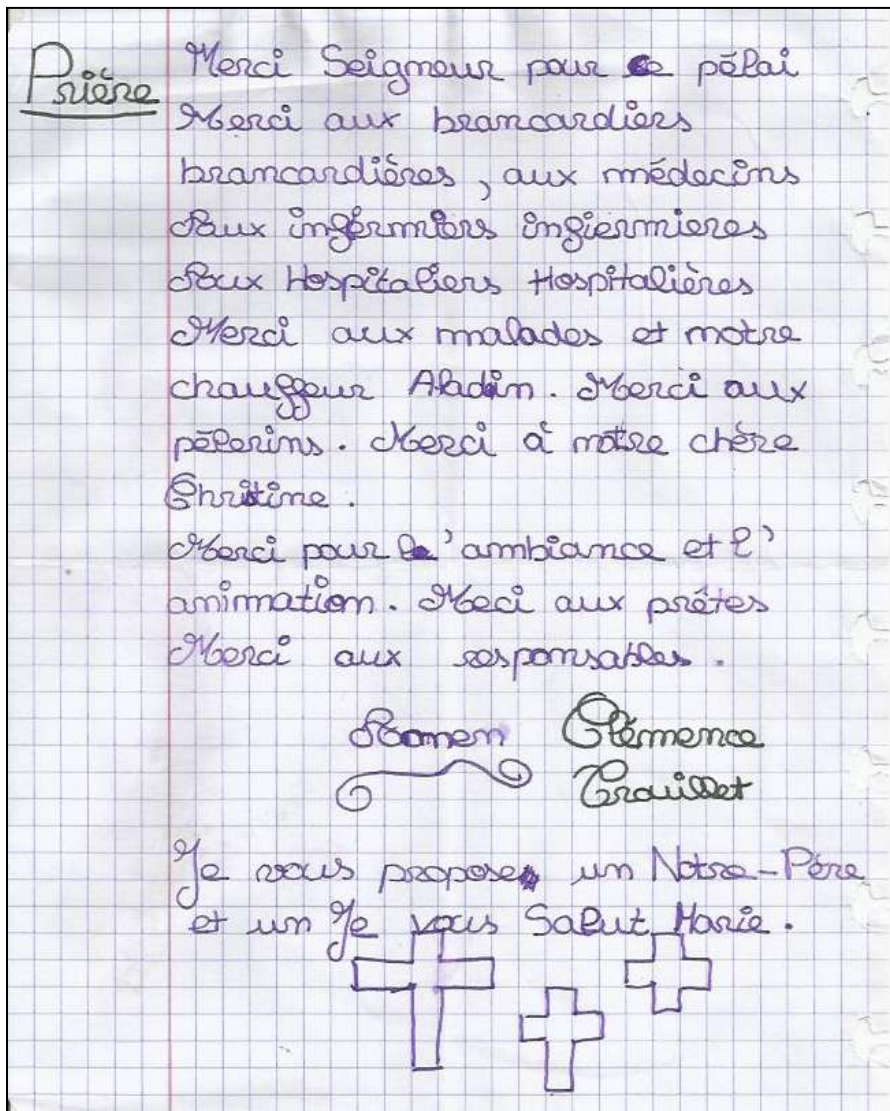 Prière
Merci Seigneur pour ce pélai
Merci aux brancardiers
brancardières, aux médecins
aux inférmiers infiermieres
aux Hospitaliers Hospitalières
Merci aux malades et notre
chauffeur Aladin. Merci aux
pélerins. Merci à notre chère
Christine.
Merci pour l'ambiance et l'
animation. Meci aux prêtes
Merci aux responsables.
Amen Clémence
Trouillet
Je vous propose un Notre-Père
et un Je vous Salut Marie.